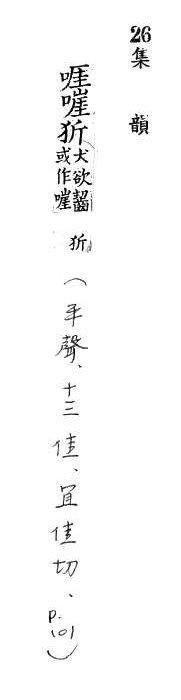 26集 韻
啀嘊㹞犬欲齧或作嘊 㹞 (平聲、十三佳、宜佳切、P.101)